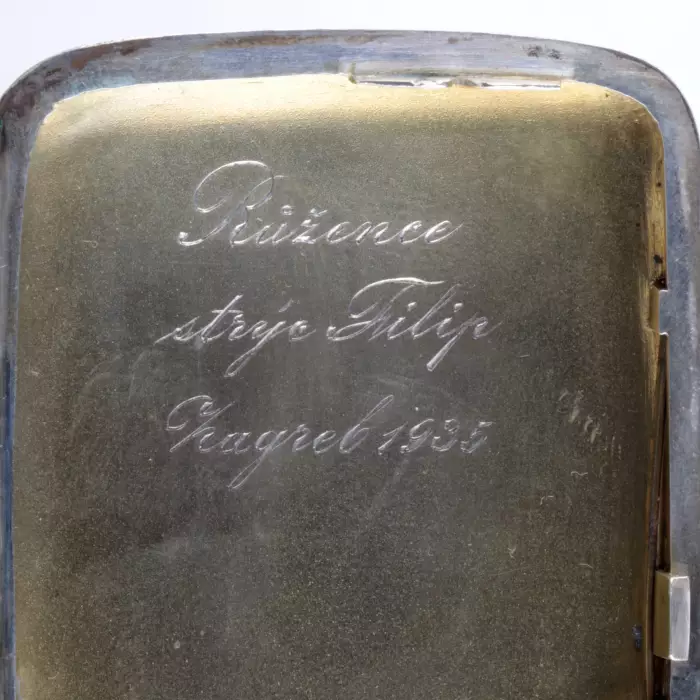 Růžence
strýc Filip
Zagreb 1935